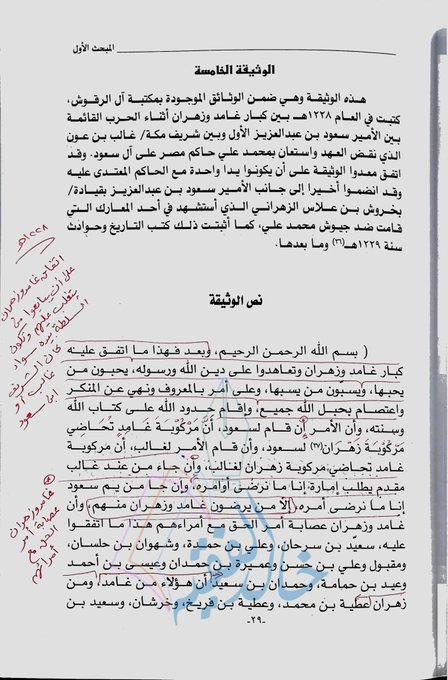 المبحث الأول
الوثيقة الخامسة
هذه الوثيقة وهي ضمن الوثائق الموجودة بمكتبة آل الرقوش،
كتبت في العام ١٢٢٨هـ بين كبار غامد وزهران أثناء الحرب القائمة
بين الأمير سعود بن عبدالعزيز الأول وبين شريف مكة/ غالب بن عون
الذي نقض العهد واستعان بمحمد علي حاكم مصر على آل سعود. وقد
اتفق معدوا الوثيقة على أن يكونوا يدا واحدة مع الحاكم المعتدى عليه
وقد انضموا أخيرا إلى جانب الأمير سعود بن عبدالعزيز بقيادة/
بخروش بن علاس الزهراني الذي أستشهد في أحد المعارك التي
قامت ضد جيوش محمد علي، كما أثبتت ذلك كتب التاريخ وحوادث
سنة ١٢٢٩هـ(٣٦) وما بعدها.
١٢٢٨هـ
اتفاق غامد وزهران
على أن يبايعوا من
السلطة
سواء
كان الشريف
غالب أو
ابن سعود
نص الوثيقة
( بسم الله الرحمن الرحيم، وبعد فهذا ما اتفق عليه
كبار غامد وزهران وتعاهدوا على دين الله ورسوله، يحبون من
يحبها، ويسبّون من يسبها، وعلى أمر بالمعروف ونهي عن المنكر
واعتصام بحبل الله جميع، وإقام حدود الله على كتاب الله
وسنته، وأن الأمر إن قام لسعود، أنَّ مَرْكُوبَةَ غَامِدٍ تُحَاضِي
مَرْكُوبَةَ زَهْرَان(٣٧) لسعود، وأن قام الأمر لغالب، أن مركوبة
غامد تحاضي مركوبة زهران لغالب، وأن جاء من عند غالب
مقدم يطلب إمارة إنا ما نرضى أوامره، وإن جا من يم سعود
إنا ما نرضى أمره، إلا من يرضون غامد وزهران منهم، وأن
غامد وزهران عصابة أمر الحق مع أمراءهم هذا ما اتفقوا
عليه، سعيّد بن سرحان، وعلي بن حميدة، وشهوان بن حلسان،
ومقبول وعلي بن حسن وعميرة بن حمدان وعيسى بن أحمد
وعيد بن حمامة، وحمدان بن سعيد أن هؤلاء من غامد، ومن
زهران عطية بن محمد، وعطية بن فريخ، وخرشان، وسعيد بن
غامد وزهران
عصابة أمر
الحق مع
أمرائهم
-٢٩-
خالد